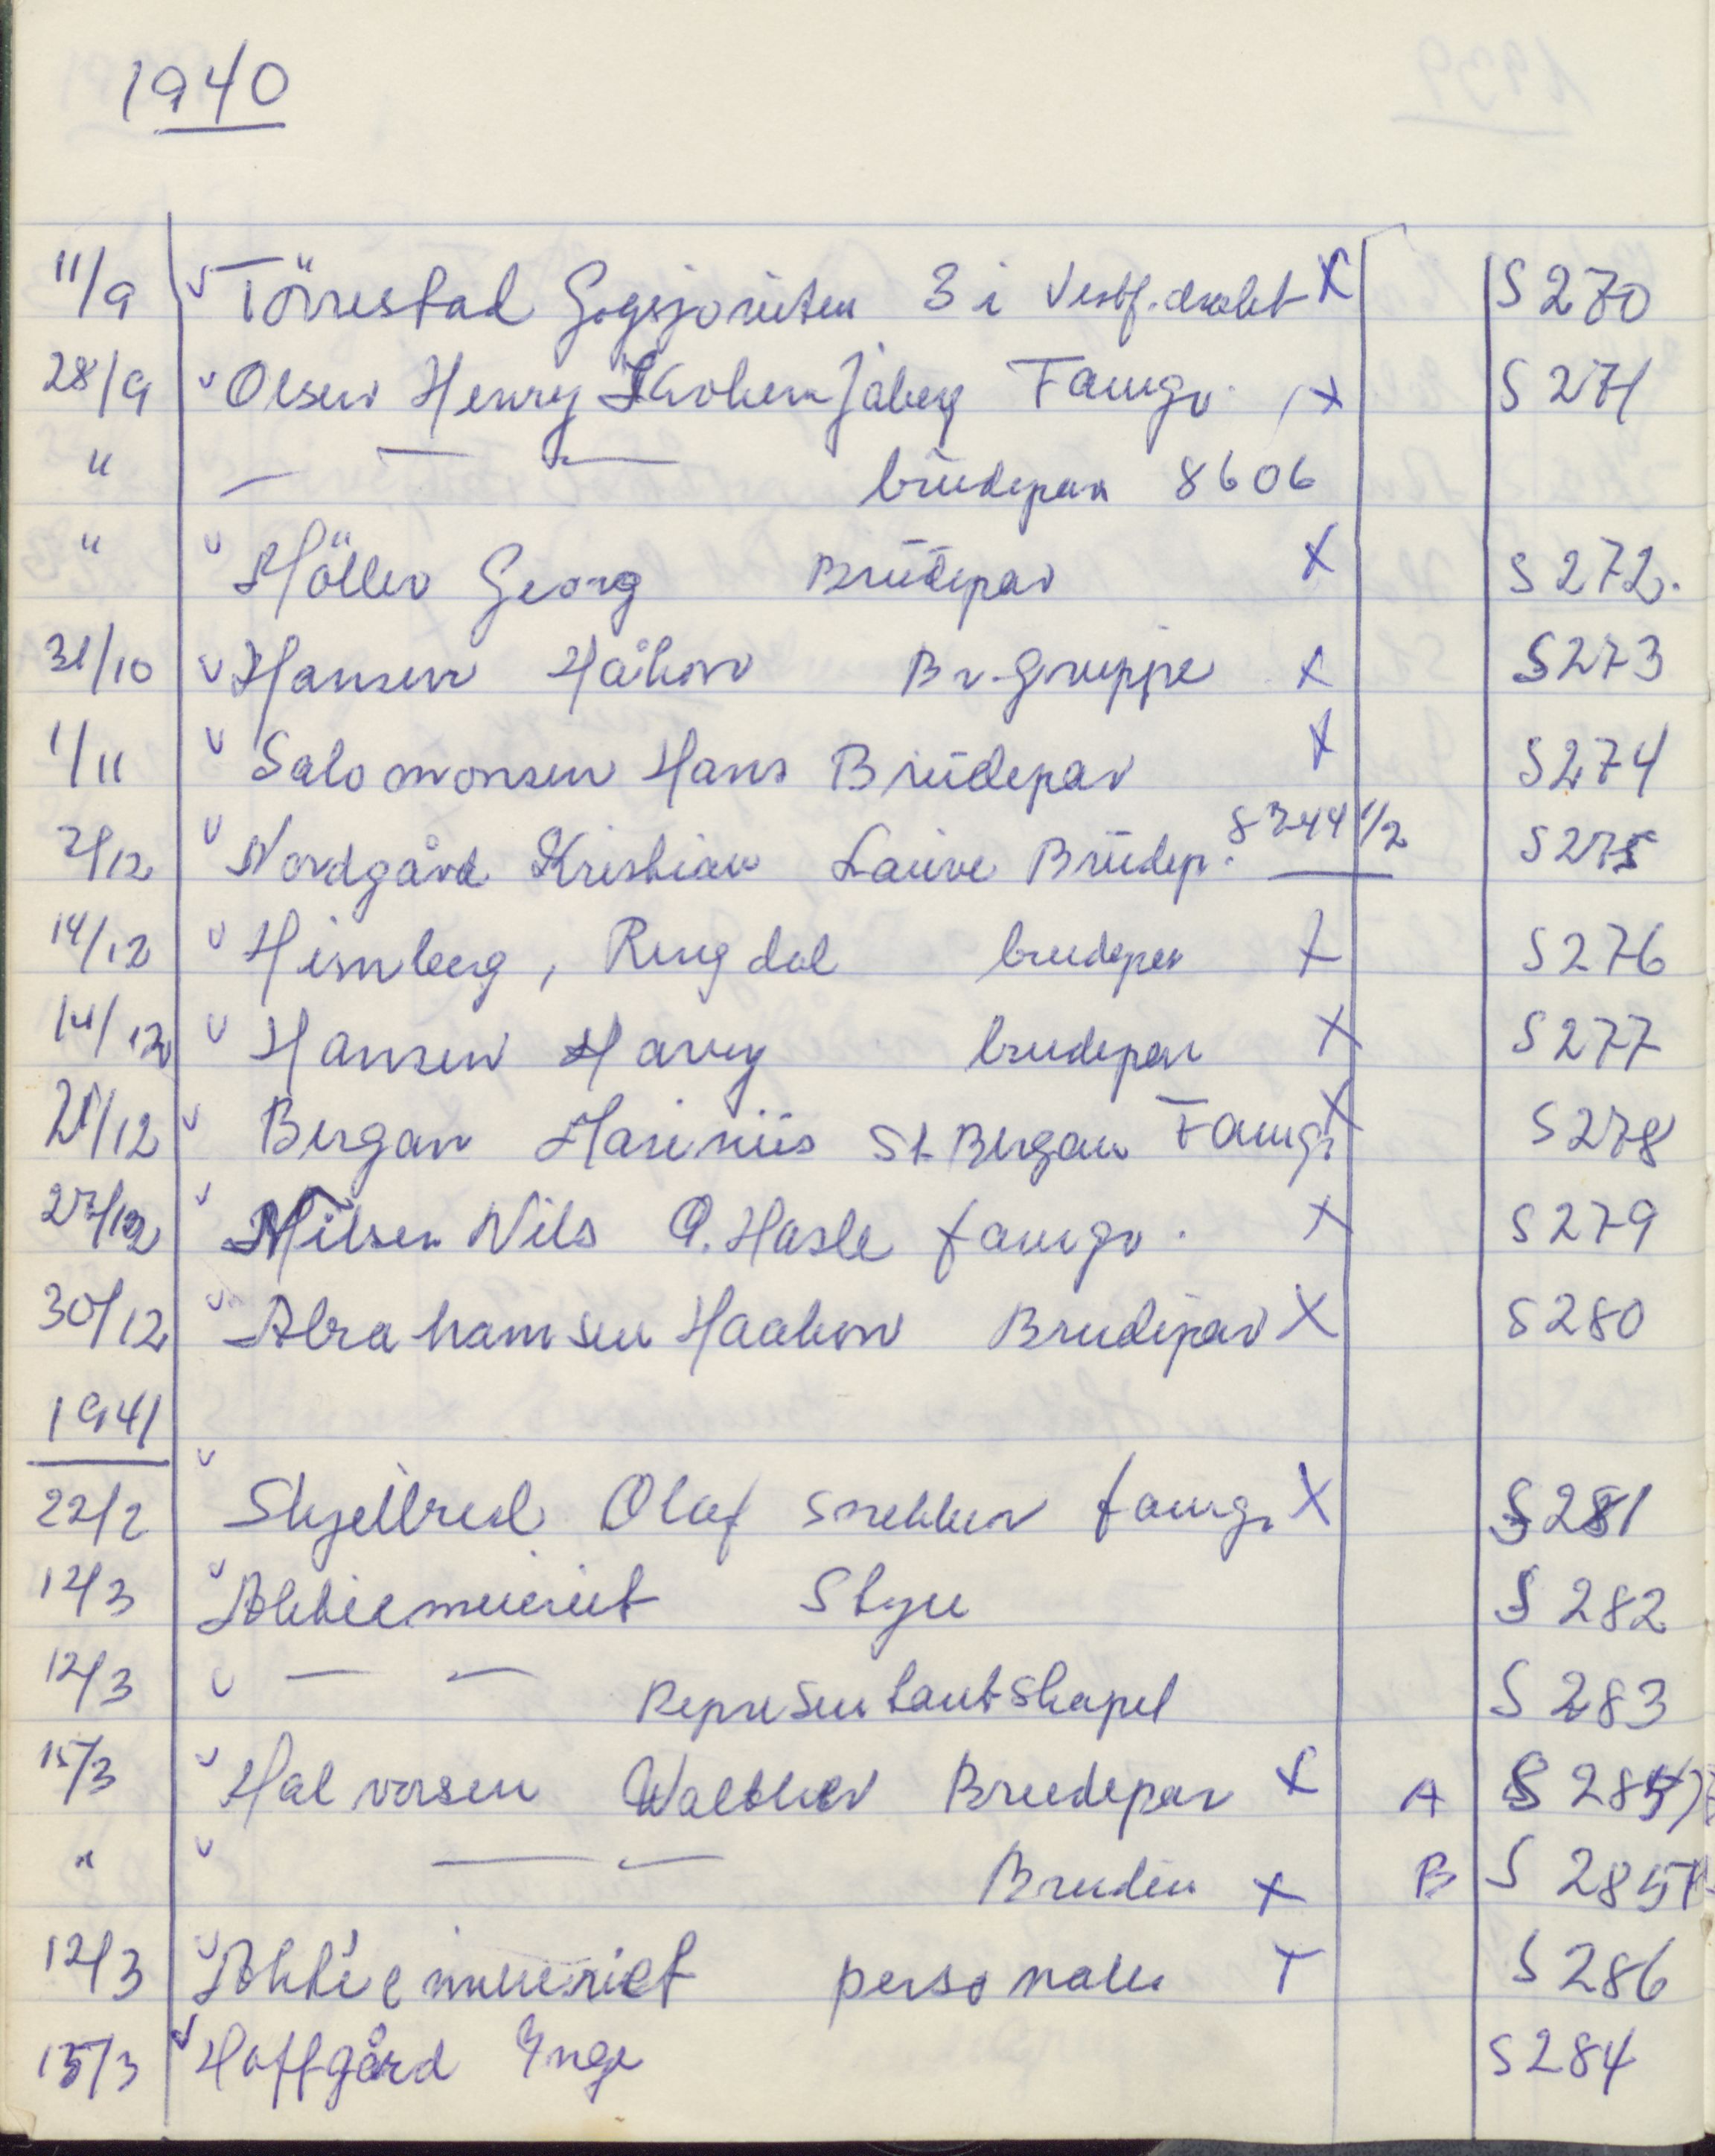 1940
11/9 v Törrestad 3 i X S 270
28/9 v Olsen Henry Famgr. X S 271
" — — — brudepar 8606
" v Möller Georg Brudepar X S 272.
31/10 v Hansen Håkon Br. Gruppe X S 273
1/11 v Salomonsen Hans Brudepar X S 274
2/12 v Nordgård Kristian Laurve Brudep. 8244 1/2 S 275
14/12 v Himberg, Ringdal brudepar X S 276
14/12 v Hansen Harry brudepar X S 277
21/12 v Bergan Marinius St. Bergan Famgr X S 278
27/12 v Nilsen Nils A. Hasle famgr. X S 279
30/12 v Abrahamsen Haakon Brudepar X S 280
1941
22/2 v Skjellbred Olaf snekker famgr X S 281
12/3 v Aktiemeieriet Styre S 282
12/3 v — — Representantskapet S 283
15/3 v Halvorsen Walther Brudepar X A S 285
" v — — Bruden X B S 285
12/3 v Aktiemeieriet personale X S 286
15/3 v Hoffgård Inge S 284